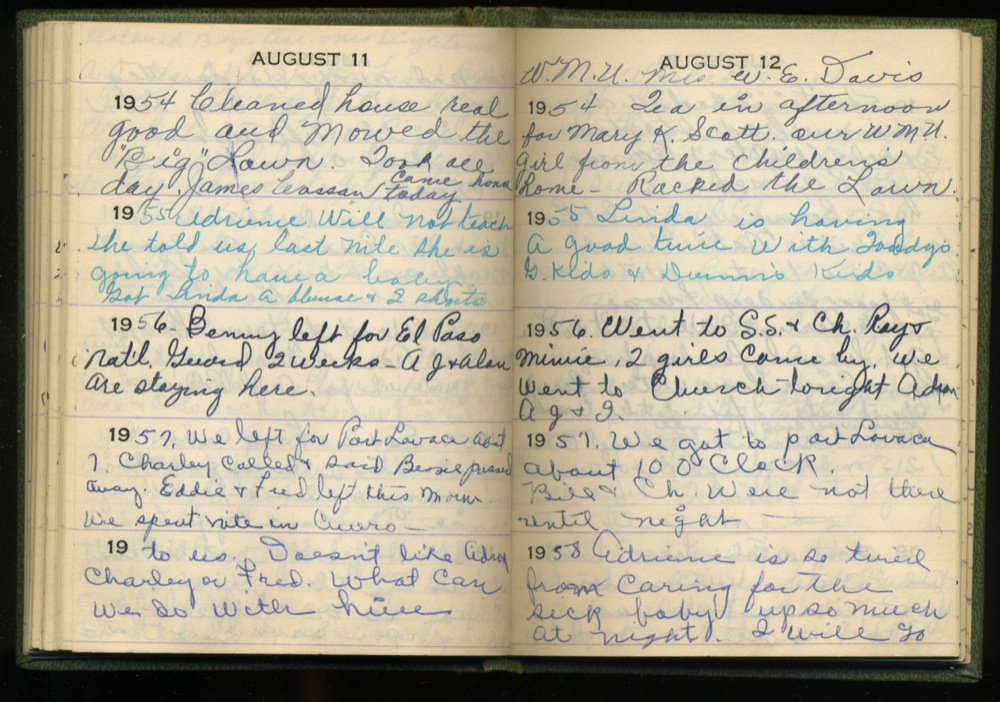 AUGUST 11
1954 Cleaned house real
good and Mowed the
"Big" Lawn. Took all
day. James Cassan came home
today
1955 Adriene Will not teach
she told us last nite she is
going to have a baby
Got Linda a blouse & 2 shorts
1956- Benny left for El Paso
Nat'l. Guard 2 weeks- A J & Alan
are staying here.
1957. We left for Port Lavaca about
7. Charley called & said Bessie passed
away. Eddie & Fred left this morn.
We spent nite in Cuero-
19 to us. Doesn't like
Charley or Fred. What can
we do with him
AUGUST 12
W.M.U. Mrs. W. E. Davis
1954 Tea in afternoon
for Mary K. Scott. our W M U.
girl from the children's
home- Racked the Lawn.
1955 Linda is having
a good time with
G. Kids & Dunnis Kids
1956. Went to S.S. & Ch. Ray &
Minie, 2 girls came by. We
went to Church tonight
A J & I.
1957. We got to port Lavaca
about 10 O'Clock.
Bill & Ch. were not there
until night
1958 Adriene is so tired
from caring for the
sick baby up so much
at night. I will go